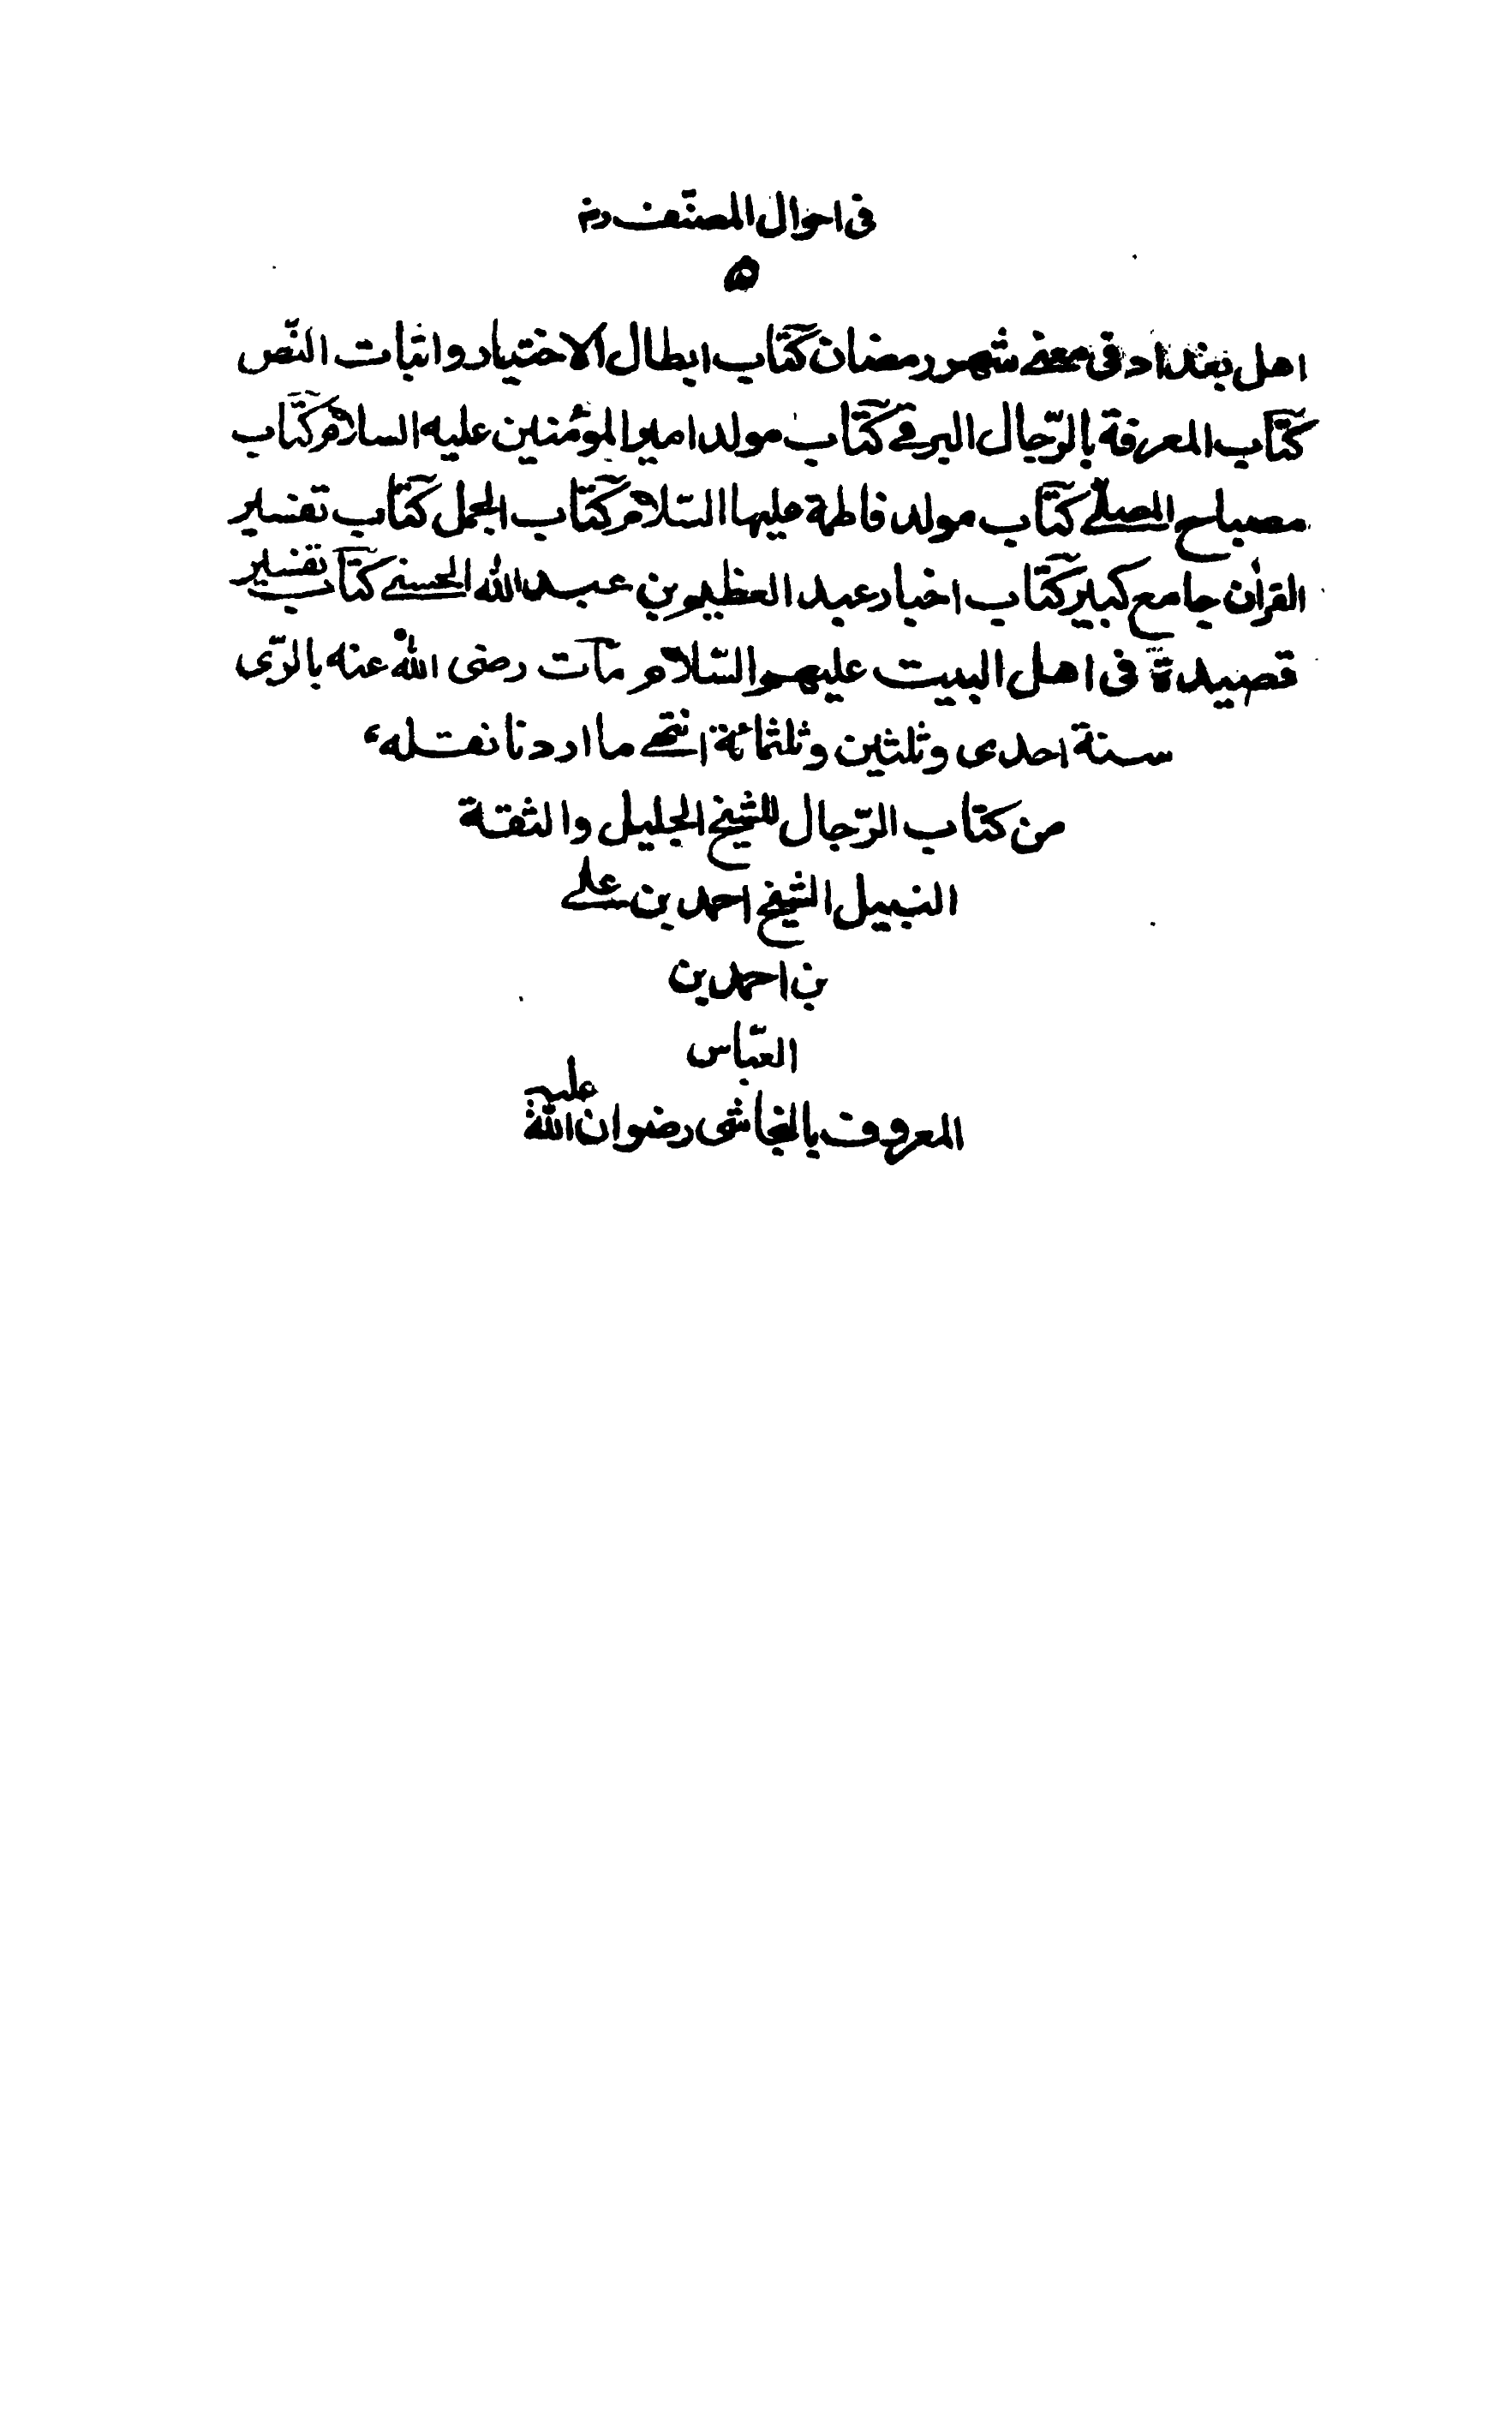 فى احوال المصنّف ره
٥
اهل بغداد فى معنى شهر رمضان كتاب ابطال الاختيار و اثبات النّص
كتاب المعرفة بالرّجال البرقى كتاب مولد امير المؤمنين عليه السلام كتاب
مصباح المصلّى كتاب مولد فاطمة عليها السّلام كتاب الجمل كتاب تفسير
القرآن جامع كبير كتاب اخبار عبد العظيم بن عبد الله الحسنى كتاب تفسير
قصيدة فى اهل البيت عليهم السّلام مات رضى الله عنه بالرّى
سنة احدى وثلثين وثلثمائة انتهى ما اردنا نقله،
من كتاب الرّجال للشيخ الجليل والثقة
النبيل الشيخ احمد بن على
بن احمد بن
العبّاس
المعروف بالنجاشى رضوان الله عليه